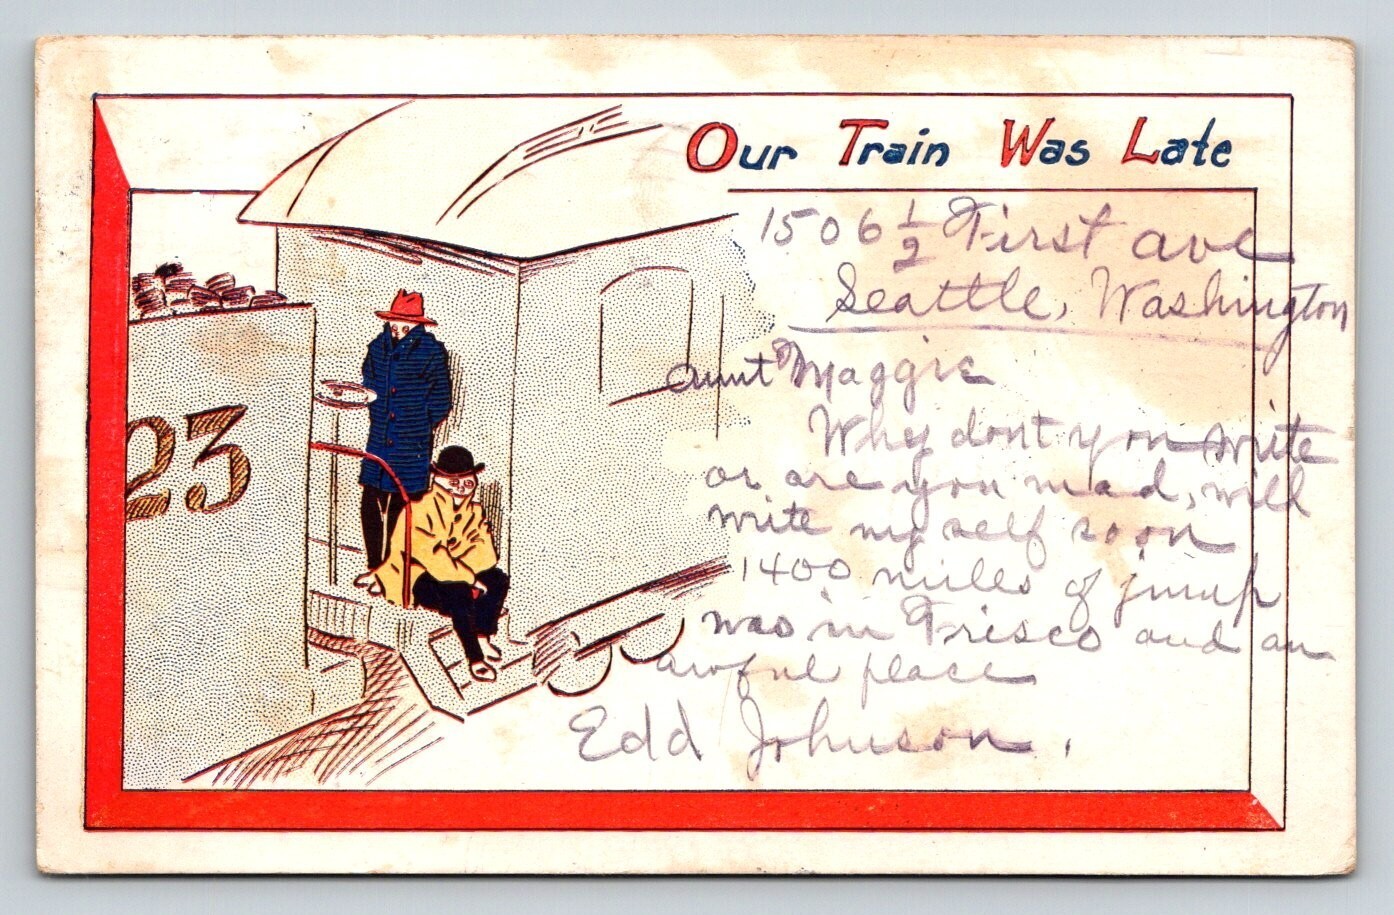 Our Train Was Late
1506 1/2 First ave
Seattle, Washington
aunt Maggie
Why dont you write
or are you mad, will
write my self soon
1400 miles of jump
was in Frisco and an
awful place
Edd Johnson.
23